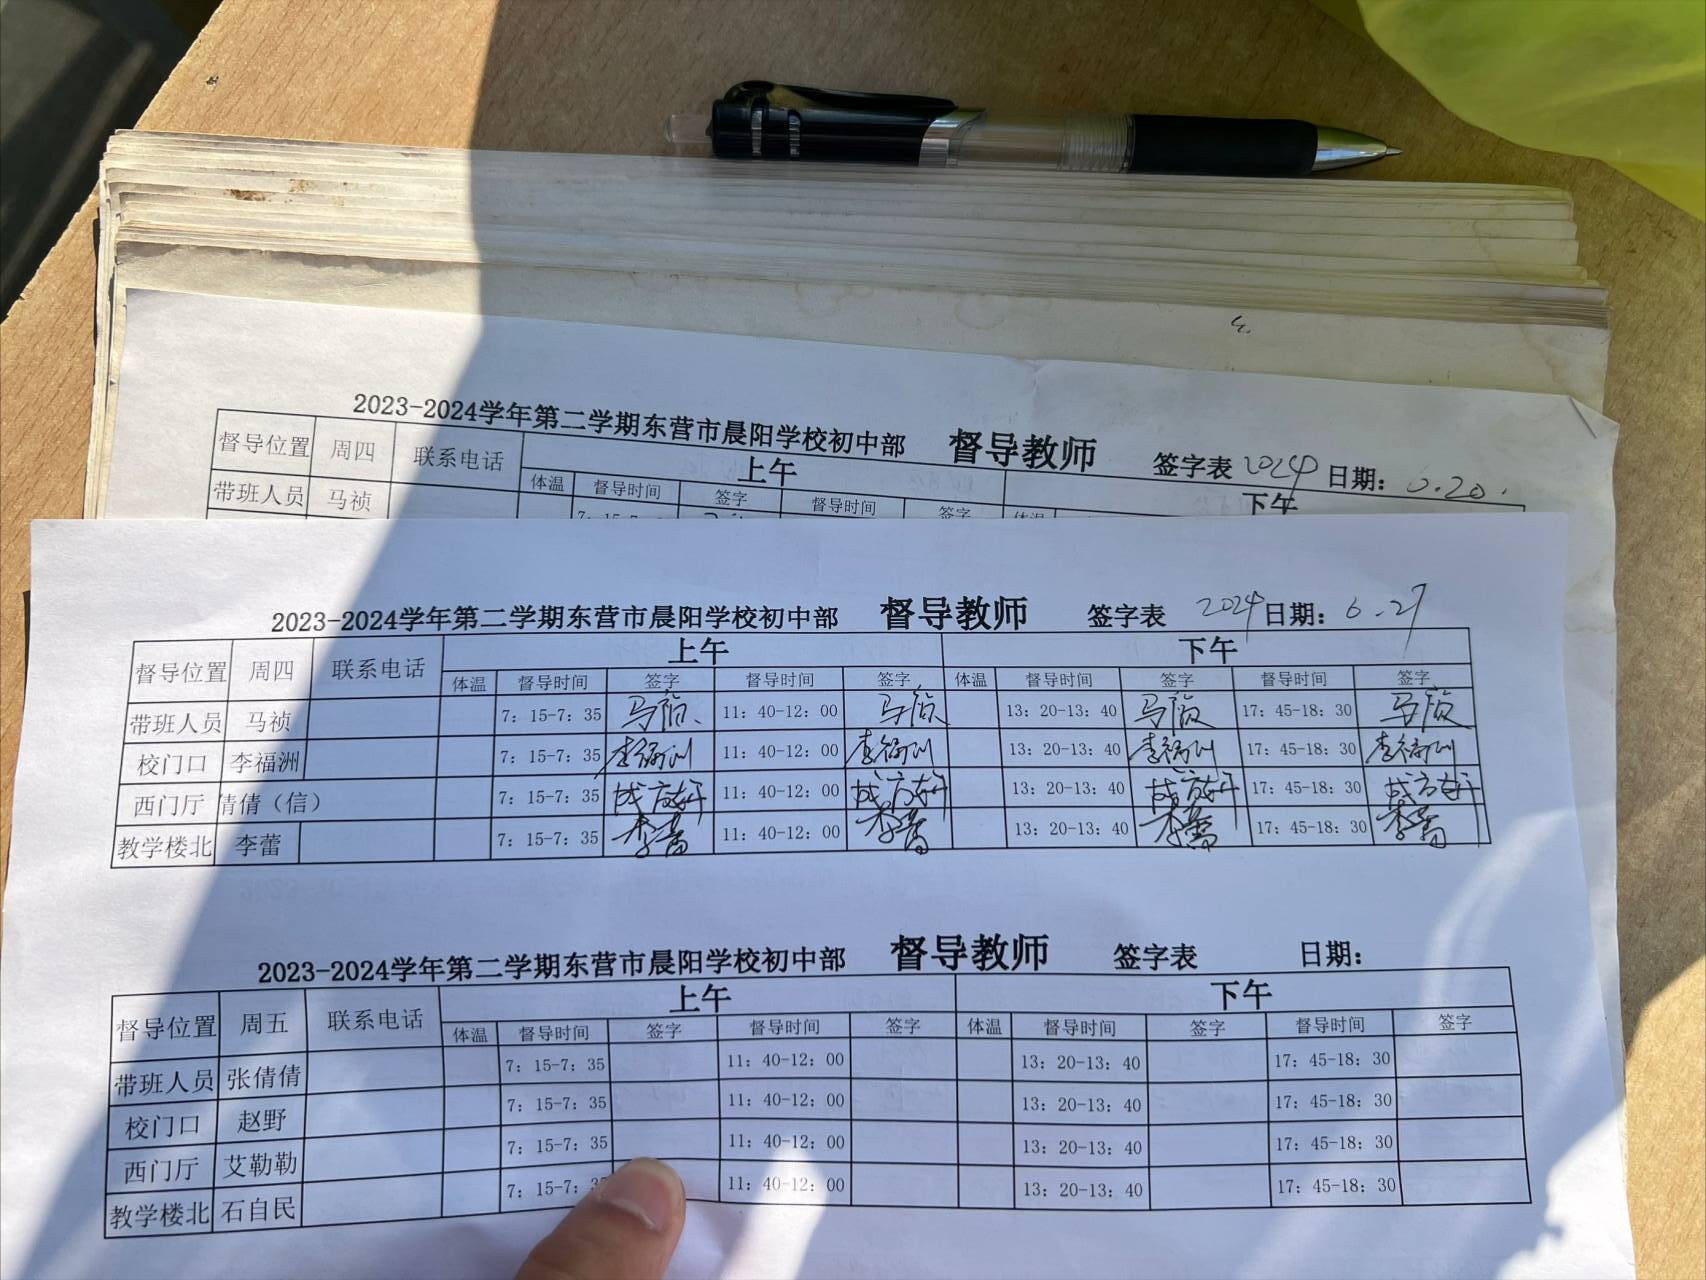 2023-2024学年第二学期东营市晨阳学校初中部 督导教师 签字表 2024 日期: 6.20.
督导位置 周四 联系电话 上午 下午
体温 督导时间 签字 督导时间 签字 体温
带班人员 马祯
2023-2024学年第二学期东营市晨阳学校初中部 督导教师 签字表 2024 日期: 6.27
督导位置 周四 联系电话 上午 下午
体温 督导时间 签字 督导时间 签字 体温 督导时间 签字 督导时间 签字
带班人员 马祯 7: 15-7: 35 马祯 11: 40-12: 00 马祯 13: 20-13: 40 马祯 17: 45-18: 30 马祯
校门口 李福洲 7: 15-7: 35 李福洲 11: 40-12: 00 李福洲 13: 20-13: 40 李福洲 17: 45-18: 30 李福洲
西门厅 倩倩（信） 7: 15-7: 35 11: 40-12: 00 13: 20-13: 40 17: 45-18: 30
教学楼北 李蕾 7: 15-7: 35 李蕾 11: 40-12: 00 李蕾 13: 20-13: 40 李蕾 17: 45-18: 30 李蕾
2023-2024学年第二学期东营市晨阳学校初中部 督导教师 签字表 日期:
督导位置 周五 联系电话 上午 下午
体温 督导时间 签字 督导时间 签字 体温 督导时间 签字 督导时间 签字
带班人员 张倩倩 7: 15-7: 35 11: 40-12: 00 13: 20-13: 40 17: 45-18: 30
校门口 赵野 7: 15-7: 35 11: 40-12: 00 13: 20-13: 40 17: 45-18: 30
西门厅 艾勒勒 7: 15-7: 35 11: 40-12: 00 13: 20-13: 40 17: 45-18: 30
教学楼北 石自民 7: 15-7: 11: 40-12: 00 13: 20-13: 40 17: 45-18: 30